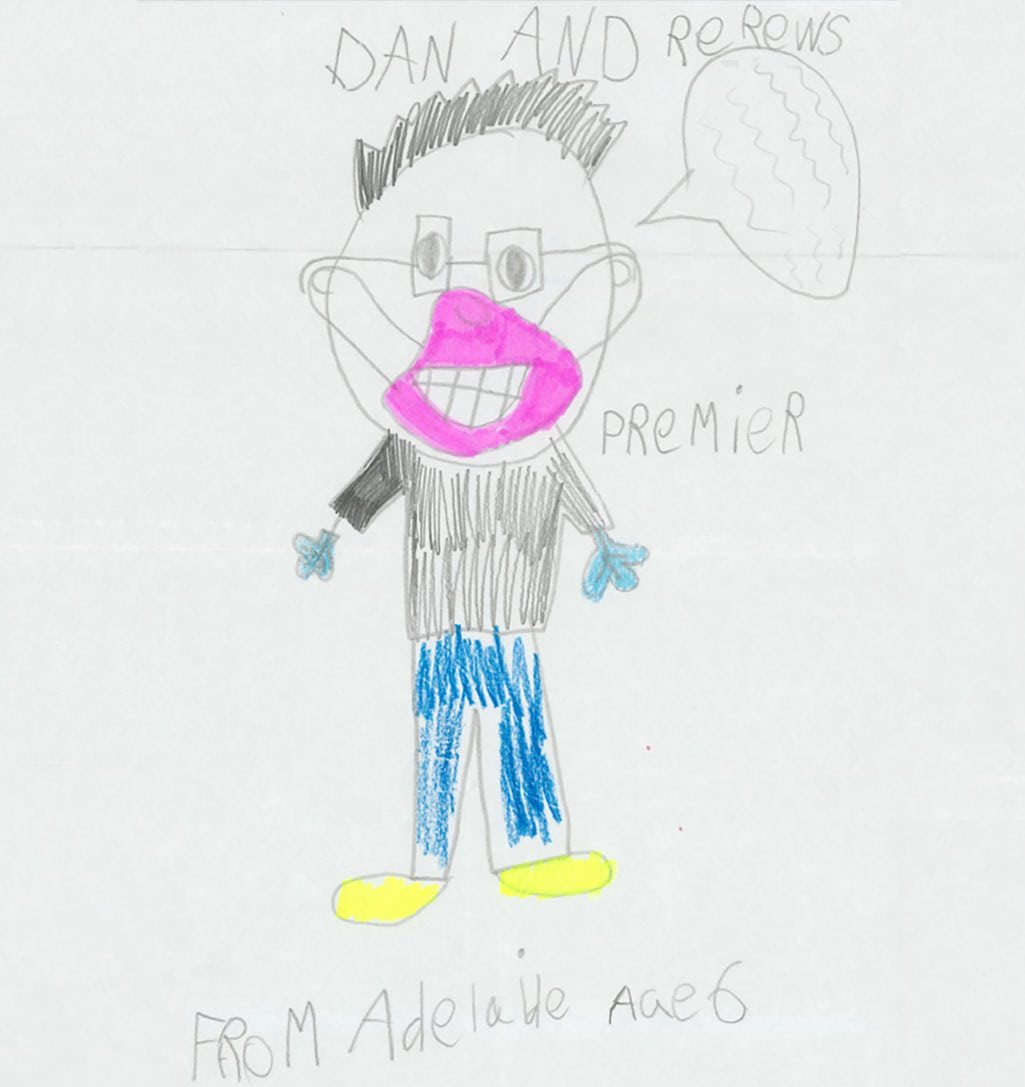 DAN AND ReRewS
PReMieR
FROM Adelaide Aae 6